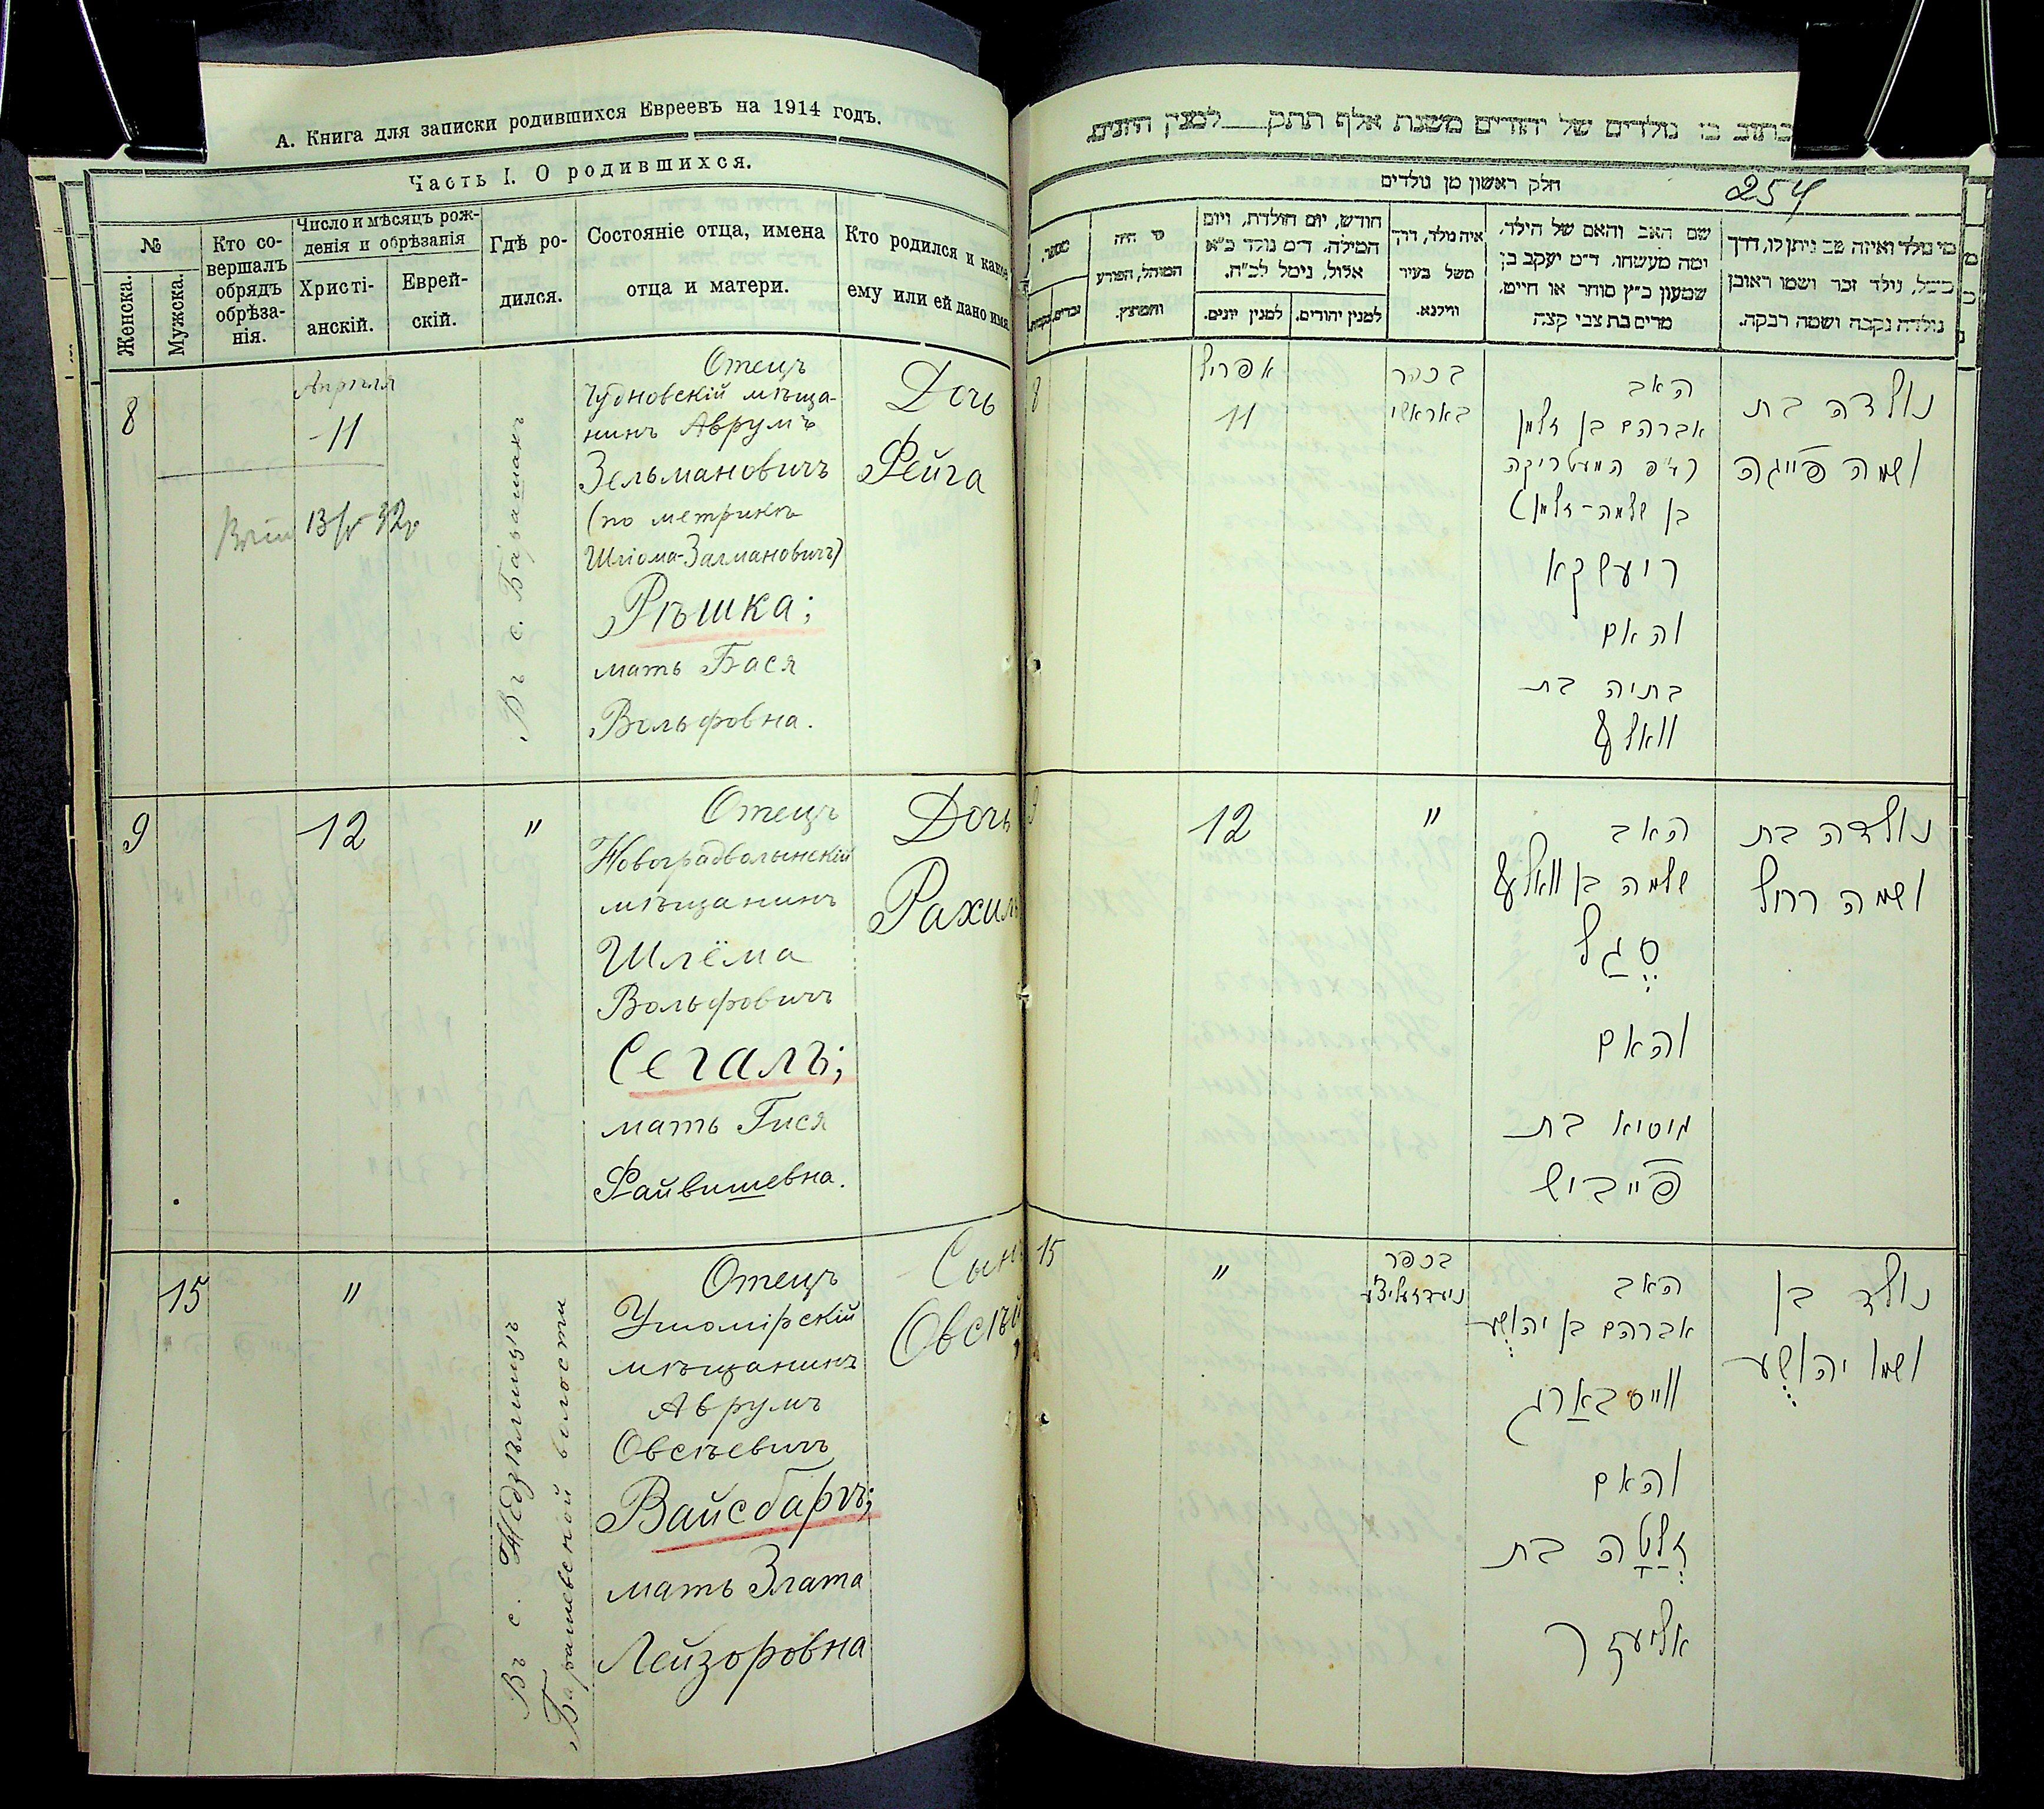 А. Книга для записки родившихся Евреевъ на 1914 годъ.
Часть I. О родившихся.
№
Женска.
Мужска.
Кто со-
вершалъ
обрядъ
обрѣза-
нія.
Число и мѣсяцъ рож-
денія и обрѣзанія
Христі-
анскій.
Еврей-
скій.
Гдѣ ро-
дился.
Состояніе отца, имена
отца и матери.
Кто родился и какое
ему или ей дано имя.
8
Апрѣля
11
13/V 32г
Въ с. Барашахъ
Отецъ
Чудновскій мѣща-
нинъ Аврумъ
Зельмановичъ
(по метрикѣ
Шліома-Залмановичъ)
Рѣшка;
мать Бася
Вольфовна.
Дочь
Фейга
9
12
"
Отецъ
Новоградволынскій
мѣщанинъ
Шлёма
Вольфовичъ
Сегалъ;
мать Гися
Файвишевна.
Дочь
Рахиль
15
"
Въ с. Недзѣлищѣ
Барашевской волости
Отецъ
Ушомірскій
мѣщанинъ
Аврумъ
Овсѣевичъ
Вайсбаргъ;
мать Злата
Лейзоровна
Сынъ
Овсѣй
נולדים של יהודים משנת אלף תתק למנין היונים
חלק ראשון מן נולדים
254
מי נולד ואיזה שם ניתן לו, דרך
משל, נולד זכר ושמו ראובן
נולדה נקבה ושמה רבקה.
שם האב והאם של הילד,
ומה מעשהו. ד״מ יעקב בן
שמעון כ״ץ סוחר או חייט,
מרים בת צבי קצה
איה נולד, דרך
משל בעיר
ווילנא.
חודש, יום הולדת, ויום
המילה, ד״מ נולד כ״א
אלול, נימול לכ״ח.
למנין יהודים.
למנין יונים.
מי היה
המוהל, הפורע
והמוצץ.
מספר.
זכרים.
נקבות.
8
אפריל
11
בכפר
באראשי
האב
אברהם בן זלמן
בן שלמה-זלמן)
ריעשקא
והאם
בתיה בת
וואלף
נולדה בת
ושמה פייגה
9
12
"
האב
שלמה בן וואלף
סגל
והאם
גיסיא בת
פייביש
נולדה בת
ושמה רחל
15
"
בכפר
האב
אברהם בן יהושע
ווייסבארג
והאם
זלטה בת
אליעזר
נולד בן
ושמו יהושע